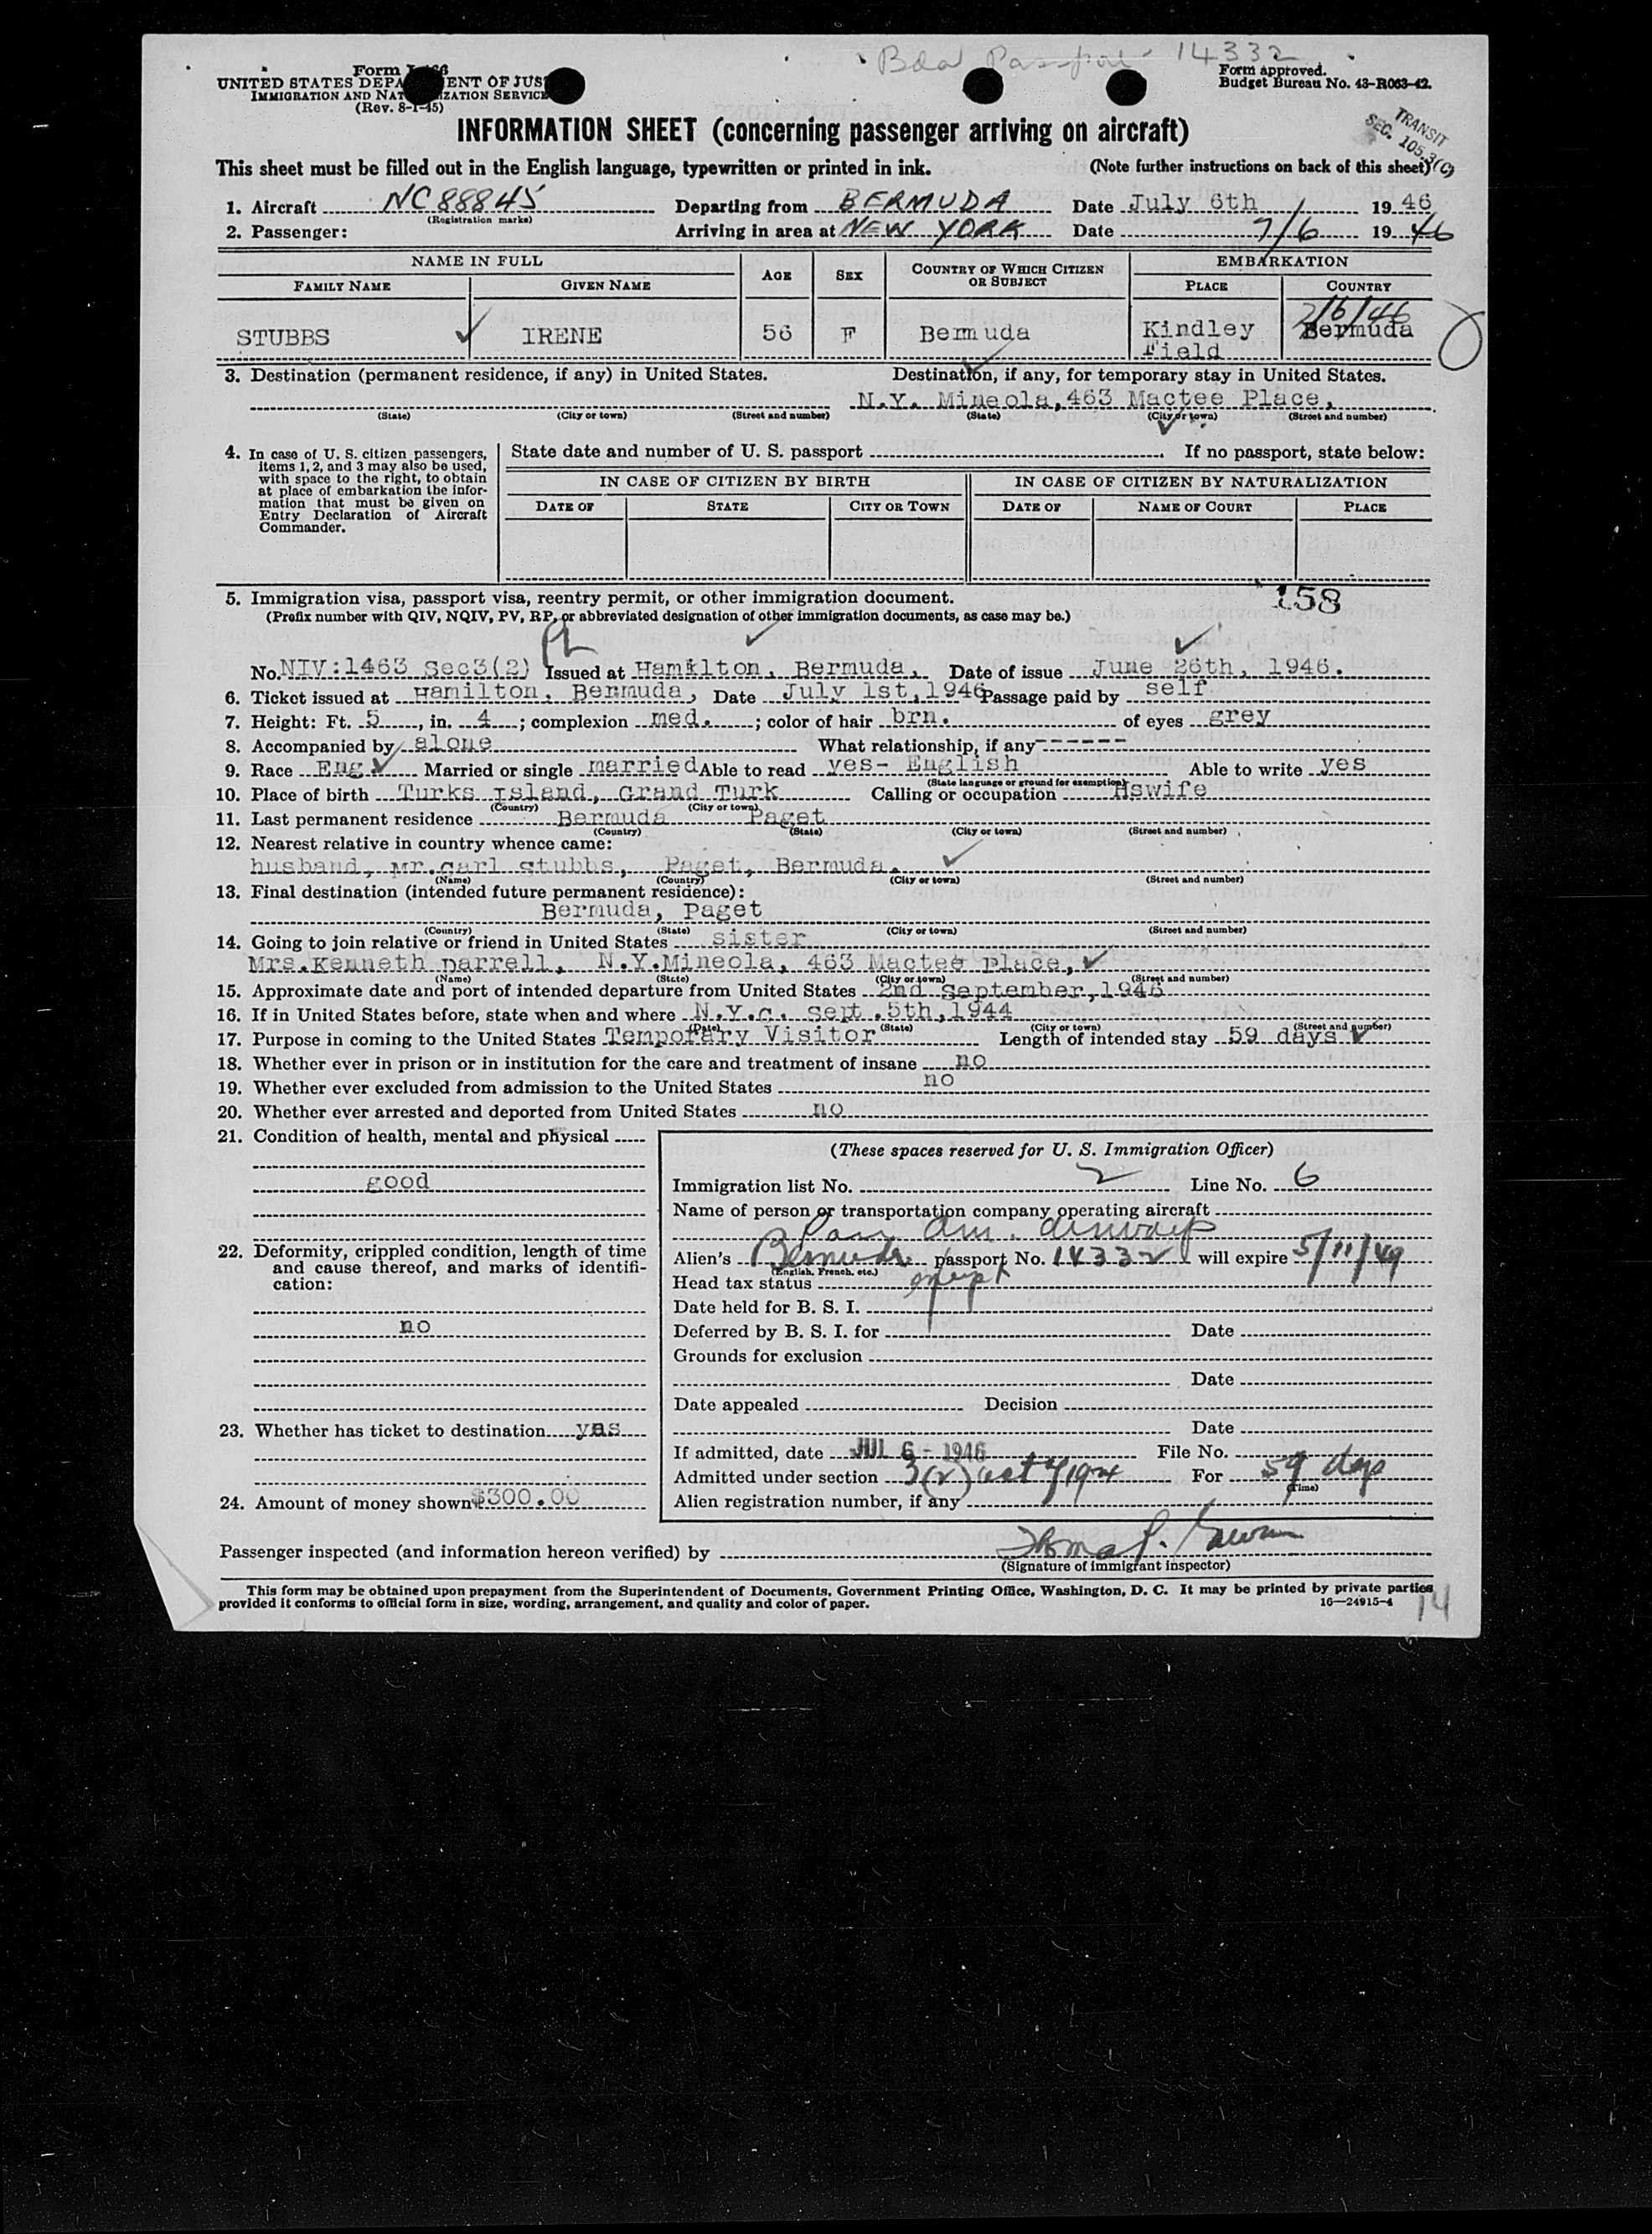 Bda Passport 14332
Form I-466
UNITED STATES DEPARTMENT OF JUSTICE
IMMIGRATION AND NATURALIZATION SERVICE
(Rev. 8-1-45)
Form approved.
Budget Bureau No. 43-R063-42.
TRANSIT
SEC. 105.3(C)
INFORMATION SHEET (concerning passenger arriving on aircraft)
This sheet must be filled out in the English language, typewritten or printed in ink. (Note further instructions on back of this sheet)
1. Aircraft NC88845 Departing from BERMUDA Date July 6th 1946
(Registration marks)
2. Passenger: Arriving in area at NEW YORK Date 7/6 1946
NAME IN FULL AGE SEX COUNTRY OF WHICH CITIZEN OR SUBJECT EMBARKATION
FAMILY NAME GIVEN NAME PLACE COUNTRY
STUBBS IRENE 56 F Bermuda Kindley Field Bermuda
3. Destination (permanent residence, if any) in United States. Destination, if any, for temporary stay in United States.
N.Y. Mineola,463 Mactee Place,
(State) (City or town) (Street and number) (State) (City or town) (Street and number)
4. In case of U. S. citizen passengers, items 1, 2, and 3 may also be used, with space to the right, to obtain at place of embarkation the information that must be given on Entry Declaration of Aircraft Commander.
State date and number of U. S. passport . If no passport, state below:
IN CASE OF CITIZEN BY BIRTH IN CASE OF CITIZEN BY NATURALIZATION
DATE OF STATE CITY OR TOWN DATE OF NAME OF COURT PLACE
158
5. Immigration visa, passport visa, reentry permit, or other immigration document.
(Prefix number with QIV, NQIV, PV, RP, or abbreviated designation of other immigration documents, as case may be.)
No. NIV:1463 Sec3(2) Issued at Hamilton, Bermuda, Date of issue June 26th, 1946.
6. Ticket issued at Hamilton, Bermuda, Date July 1st,1946 Passage paid by self
7. Height: Ft. 5, in. 4; complexion med. ; color of hair brn. of eyes grey
8. Accompanied by alone What relationship, if any ------
9. Race Eng Married or single married Able to read yes- English Able to write yes
(State language or ground for exemption)
10. Place of birth Turks Island, Grand Turk Calling or occupation Hswife
(Country) (City or town)
11. Last permanent residence Bermuda Paget
(Country) (State) (City or town) (Street and number)
12. Nearest relative in country whence came:
husband, Mr.Carl Stubbs, Paget, Bermuda.
(Name) (Country) (City or town) (Street and number)
13. Final destination (intended future permanent residence):
Bermuda, Paget
(Country) (State) (City or town) (Street and number)
14. Going to join relative or friend in United States sister
Mrs.Kenneth Darrell, N.Y.Mineola, 463 Mactee Place,
(Name) (State) (City or town) (Street and number)
15. Approximate date and port of intended departure from United States 2nd September,1946
16. If in United States before, state when and where N.Y.C. Sept.5th,1944
(Date) (State) (City or town) (Street and number)
17. Purpose in coming to the United States Temporary Visitor Length of intended stay 59 days
18. Whether ever in prison or in institution for the care and treatment of insane no
19. Whether ever excluded from admission to the United States no
20. Whether ever arrested and deported from United States no
21. Condition of health, mental and physical
good
22. Deformity, crippled condition, length of time and cause thereof, and marks of identification:
no
23. Whether has ticket to destination yes
24. Amount of money shown $300.00
(These spaces reserved for U. S. Immigration Officer)
Immigration list No. 2 Line No. 6
Name of person or transportation company operating aircraft
Pan Am. Airways
Alien's Bermuda passport No. 14332 will expire 5/11/49
(English, French, etc.)
Head tax status exempt
Date held for B. S. I.
Deferred by B. S. I. for Date
Grounds for exclusion
Date
Date appealed Decision
Date
If admitted, date JUL 6 - 1946 File No.
Admitted under section 3(2) act of 1924 For 59 days
(Time)
Alien registration number, if any
Passenger inspected (and information hereon verified) by
(Signature of immigrant inspector)
This form may be obtained upon prepayment from the Superintendent of Documents, Government Printing Office, Washington, D. C. It may be printed by private parties
provided it conforms to official form in size, wording, arrangement, and quality and color of paper. 16—24915-4
14